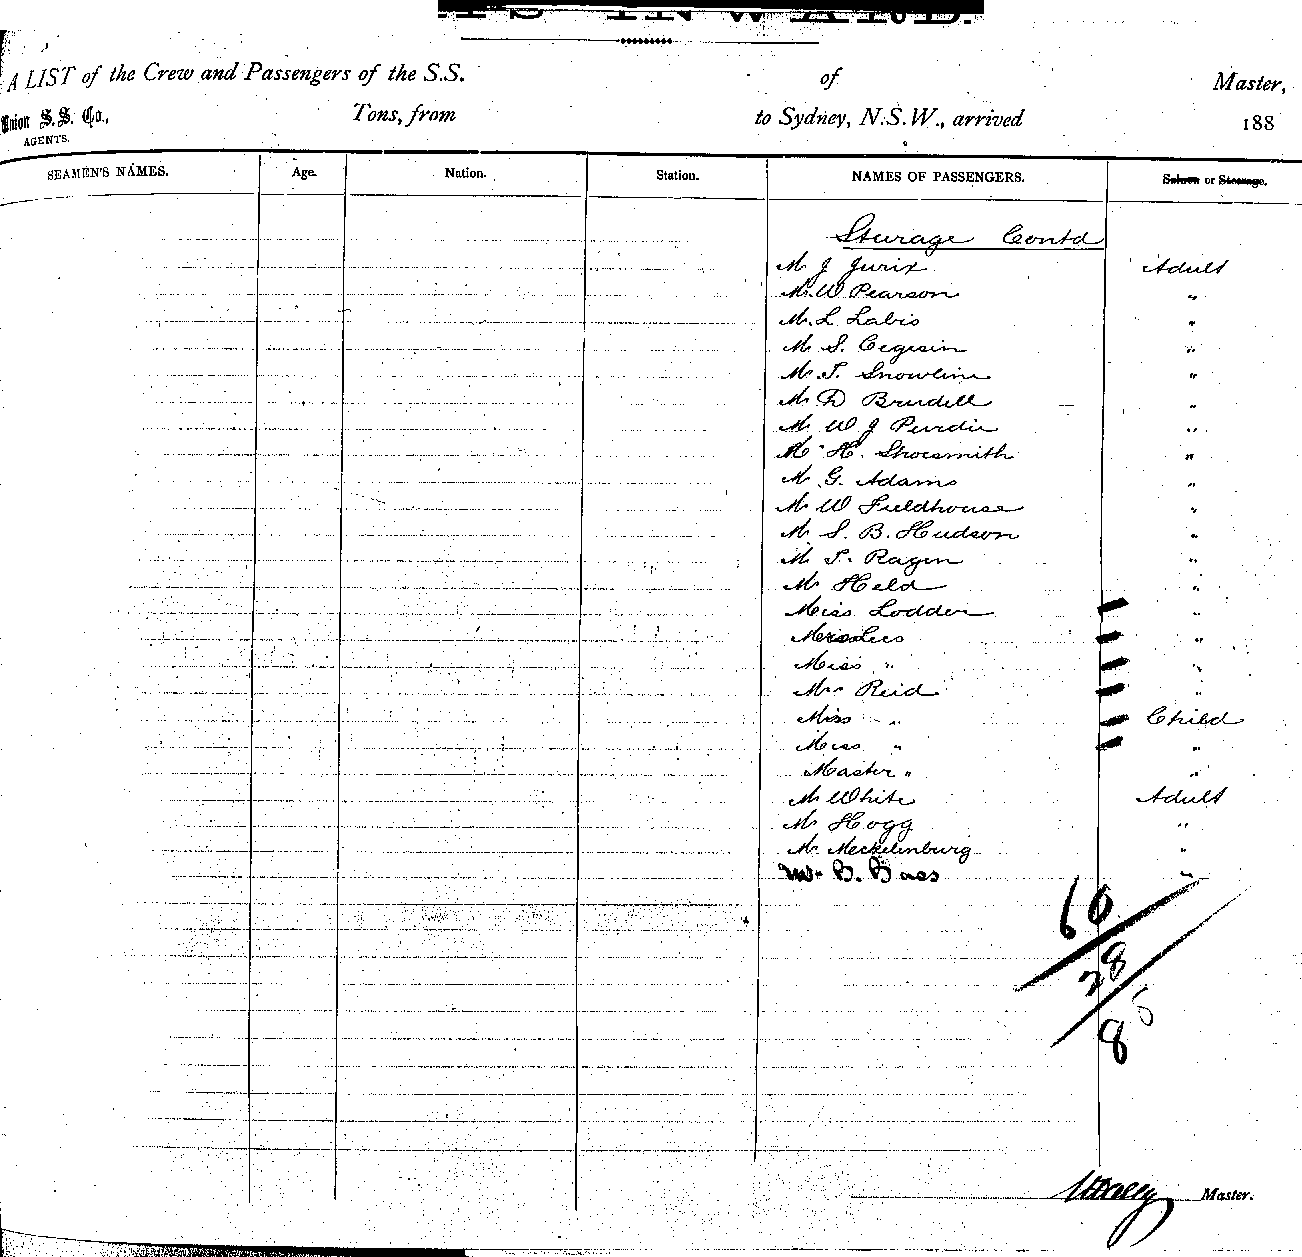 A LIST of the Crew and Passengers of the S.S. of Master,
Union S.S. Co., AGENTS. Tons, from to Sydney, N.S.W., arrived 188
SEAMEN'S NAMES. Age. Nation. Station. NAMES OF PASSENGERS. Saloon or Steerage.
Steerage Contd
Mr J Jurix Adult
Mr W Pearson "
Mr L Labis "
Mr S. Cegisin "
Mr T. Snowline "
Mr D Brudell "
Mr W J Purdie "
Mr H. Shoesmith "
Mr G. Adams "
Mr W Fieldhouse "
Mr S. B. Hudson "
Mr T. Ragen "
Mr Held "
Miss Lodder "
Miss Lees "
Miss " "
Mrs Reid "
Miss " Child
Miss " "
Master " "
Mr White Adult
Mr Hogg "
Mr Mecklinburg "
Mr B. Bass "
60
28
8
Master.